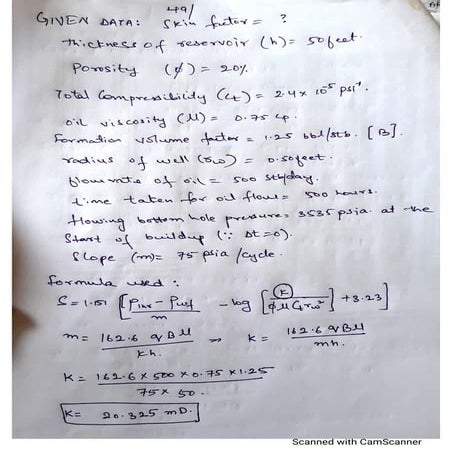 49/
GIVEN DATA: Skin factor = ?
thickness of reservoir (h) = 50 feet.
Porosity (ϕ) = 20%.
Total Compressibility (Ct) = 2.4 x 10⁻⁵ psi⁻¹.
oil viscosity (μ) = 0.75 cp.
Formation volume factor = 1.25 bbl/stb. [B].
radius of well (rw) = 0.50 feet.
flow rate of oil = 500 stb/day.
time taken for oil flow = 500 hours.
flowing bottom hole pressure = 3535 psia. at the
Start of buildup (∵ Δt=0).
Slope (m) = 75 psia/cycle.
Formula used:
S = 1.151 [P1hr - Pwf / m - log [K / ϕ μ Ct rw²] + 3.23]
m = 162.6 q B μ / Kh. → K = 162.6 q B μ / mh.
K = 162.6 x 500 x 0.75 x 1.25 / 75 x 50.
K = 20.325 mD.
Scanned with CamScanner